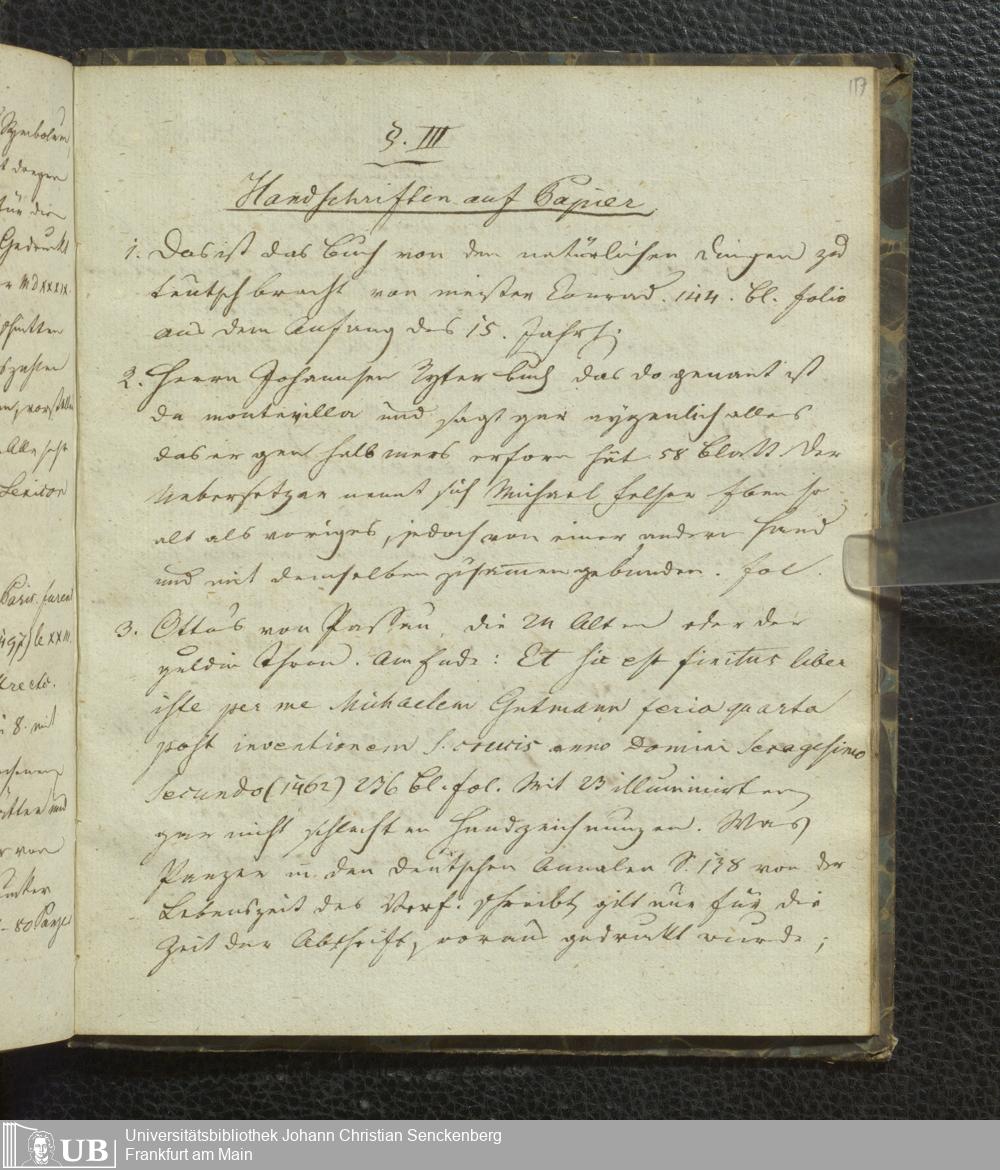 Symbolum,
t dergen
für die
Gedruckt
MDXXXIX.
schnitten
vorstellen
Alle sehr
Lexicon
Paris. furent
1497) le XXIII.
recto.
8. mit
und
r von
80 Panze
117
§. III
Handschriften auf Papier.
1. Das ist das Buch von den natürlichen Dingen zů
teutsch bracht von meister Conrad. 144. Bl. folio
aus dem Anfang des 15. Jahrh.
2. Herrn Johannsen Ryter buch das do genant ist
de montevilla und sagt gar aygenlich alles
das er gen halb mers erforn hät 58 Blatt. Der
Uebersetzer nennt sich Michael Felser Eben so
alt als voriges, jedoch von einer andern Hand
und mit demselben zusam̅en gebunden. fol.
3. Otto's von Passau, die 24 Alten oder der
guldin Thron. Am Ende: Et sic est finitus liber
iste per me Michaelem Gutmann feria quarta
post inventionem S. crucis anno Domini Sexagesimo
Secundo (1462) 236 Bl. fol. Mit 23 illuminirten
gar nicht schlechten Handzeichnungen. Was
Panzer in den deutschen Annalen S. 138 von der
Lebenszeit des Verf. schreibt, gilt nur für die
Zeit der Abschrift, woraus gedruckt wurde;
UB
Universitätsbibliothek Johann Christian Senckenberg
Frankfurt am Main